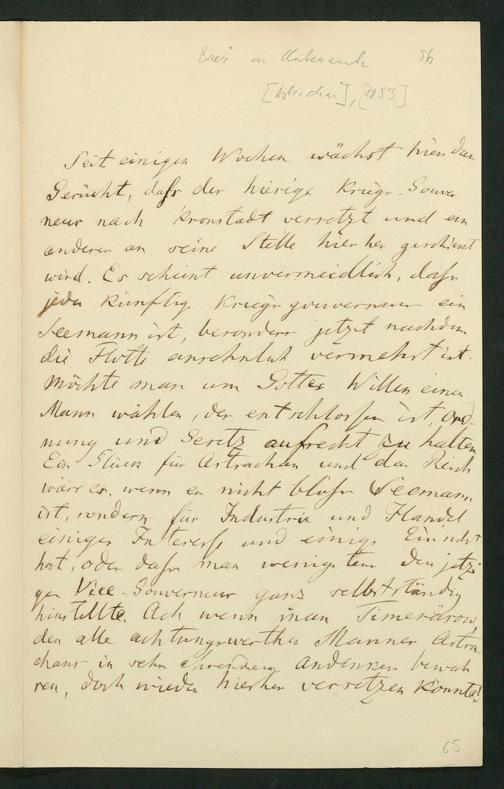 Baer an
56
[1853]
Seit einigen Wochen wächst hier das
Gerücht, dass der hiesige Kriegs-Gouver
neur nach Kronstadt versetzt und ein
anderer an seine Stelle hierher geschickt
wird. Es scheint unvermeidlich, dass
jeder künftige Kriegsgouverneur ein
Seemann ist, besonders jetzt nachdem
die Flotte ansehnlich vermehrt ist.
Möchte man um Gottes Willen einen
Mann wählen, der entschlossen ist, Ord-
nung und Gesetz aufrecht zu halten
Ein Glück für Astrachan und das Reich
wäre es, wenn er nicht bloss Seemann
ist, sondern für Industrie und Handel
einiges Interesse und einige Einsicht
hat, oder dass man wenigstens den jetzi
gen Vice-Gouverneur ganz selbstständig
hinstellte. Ach wenn man Timeräsow,
den alle achtungswerthen Männer Astra
chans in sehr ehrendem Andenken bewah
ren, doch wieder hierher versetzen könnte!
65